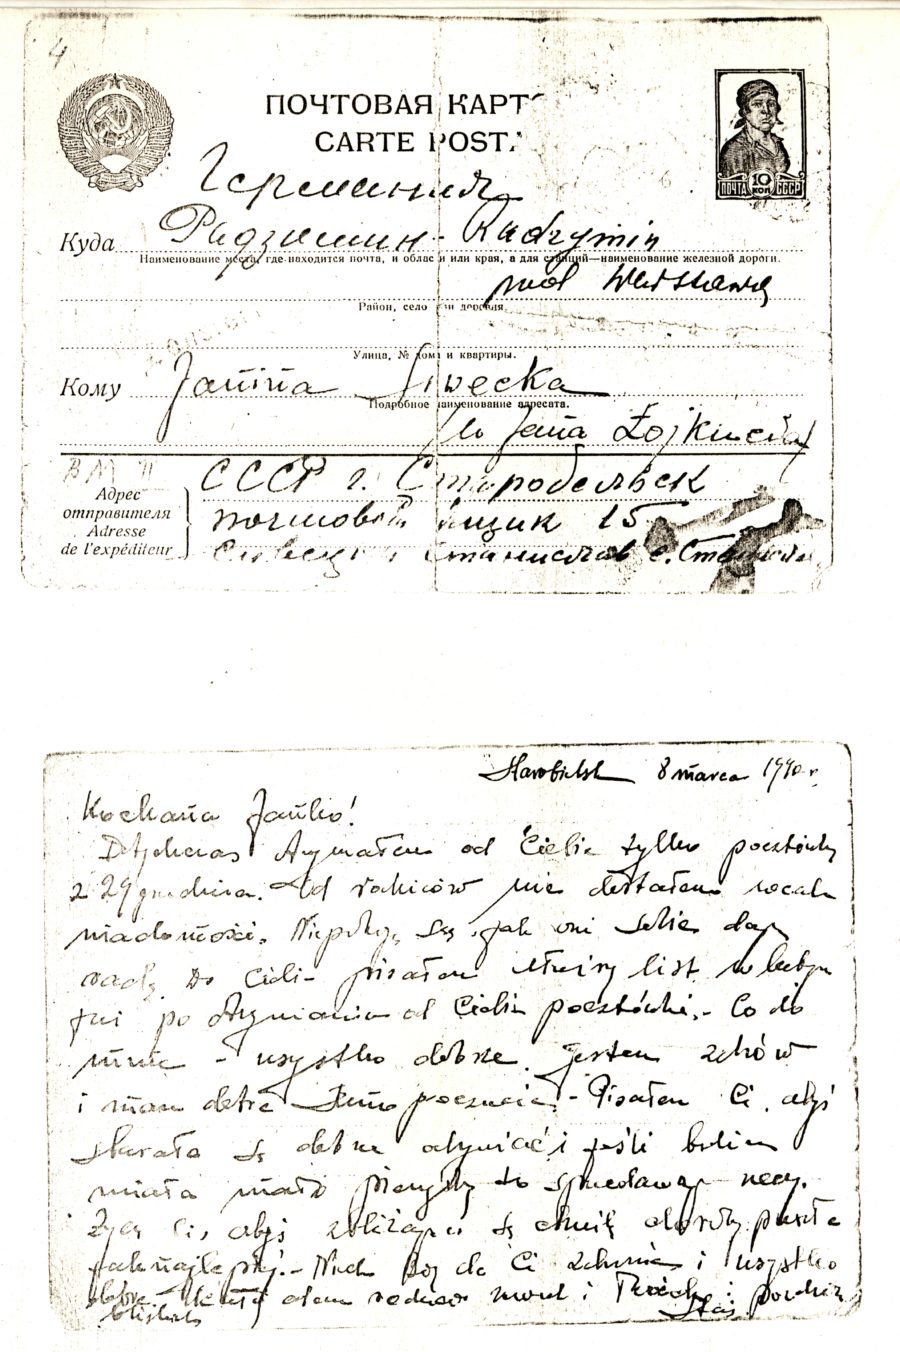 4
ПОЧТОВАЯ КАРТ
CARTE POST.
Германия
Куда Радзимин - Radzymin
Наименование места, где находится почта, и област и или края, а для станций—наименование железной дороги.
pod Warszawą
Район, село или деревня.
Улица, № дома и квартиры.
Кому Janina Siwecka
Подробное наименование адресата.
Jana
ПОЧТА 10 КОП СССР
Адрес отправителя
Adresse de l'expéditeur
СССР г. Старобельск
почтовый ящик 15
Станислав с.
Starobielsk 8 marca 1940 r.
Kochana Janko!
Dotychczas otrzymałem od Ciebie tylko pocztówkę
z 29 grudnia. Od rodziców nie dostałem wcale
wiadomości. Niepokoję się, jak oni sobie dają
radę. Do Ciebie pisałem list w lutym
po otrzymaniu od Ciebie pocztówki. - Co do
mnie - wszystko dobrze. Jestem zdrów
i mam dobre poczucie. - Pisałem Ci, abyś
starała się dobrze odżywiać i jeśli będziesz
miała mało pieniędzy to sprzedawaj rzeczy.
Życzę Ci, abyś
jaknajlepiej. - Niech Bóg da Ci zdrowie i wszystko
dobre. rodziców i
bliskich Staś.